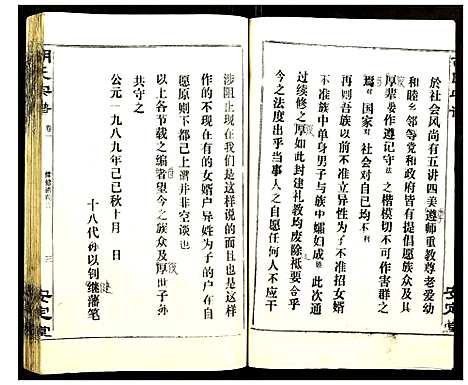 於社会风尚有五讲四美遵师重教尊老爱幼
和睦乡邻等党和政府皆有提倡愿族众及其
厚辈娄作遵记守法之楷模切不可作害群之
焉国家对社会对自已均不利
再则吾族以前不准立异性为子不准招女婿
不准族中单身男子与族中孀妇成婚此次通
过续修之厚如此封建礼教均废除祗要合乎
今之法度出乎当事人之自愿任何人不应干
涉阻止现在我们是这样说的而且也是这样
作的不现在有的女婿户异姓为子的户在自
愿原则下都己上谱并非空谈也
以上各节载之编者望今之族众及厚世子孙
共守之
公元一九八九年己巳秋十月 日
十八代孙以钊继藩笔
胡氏宗谱
卷一
三
安定堂
安定堂